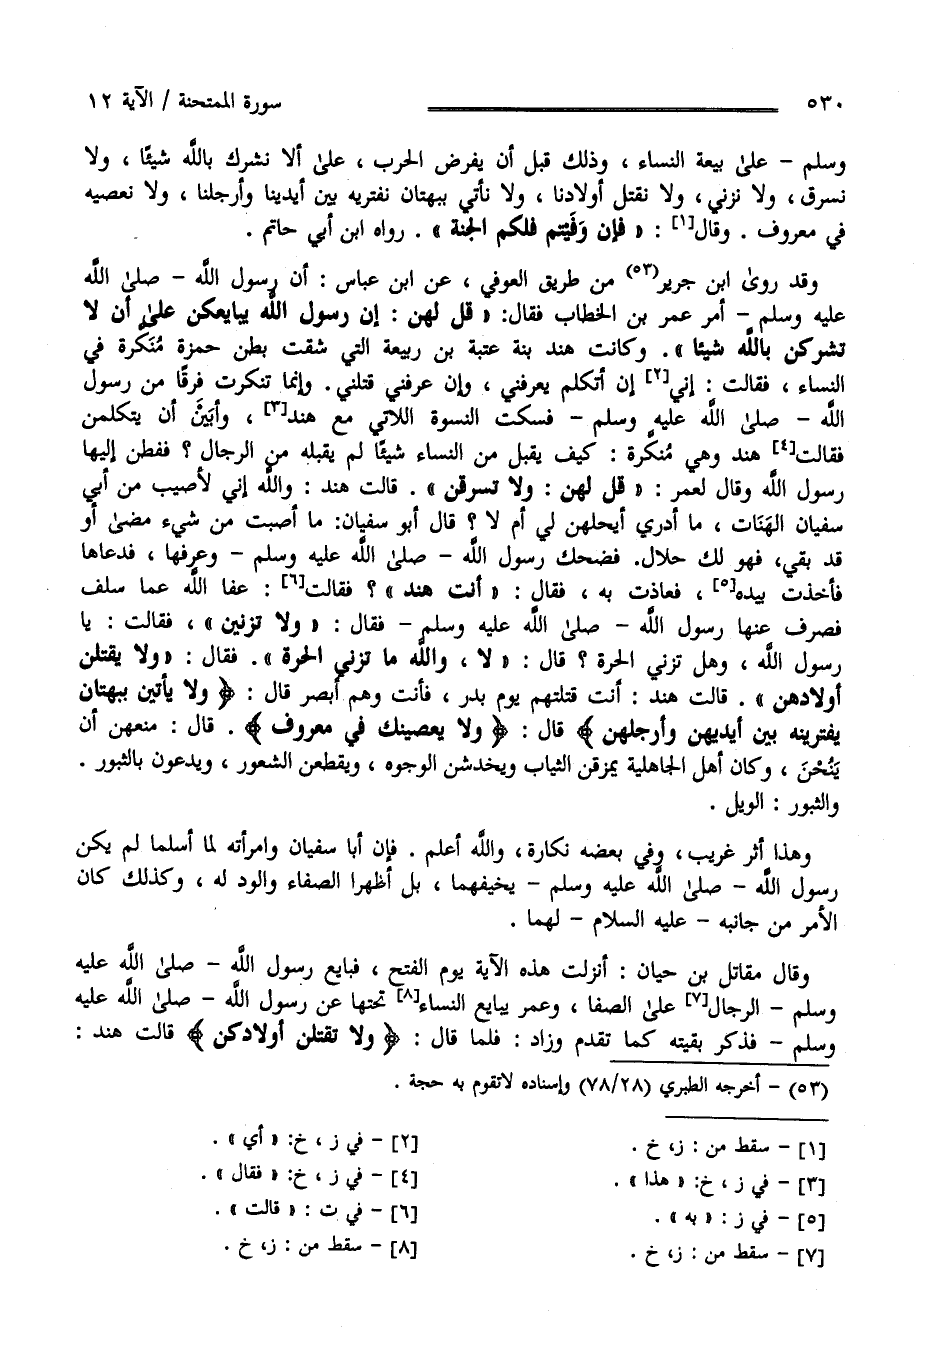 ٥٣٠ سورة الممتحنة / الآية ١٢
وسلم - على بيعة النساء ، وذلك قبل أن يفرض الحرب ، على ألا نشرك باللَّه شيئًا ، ولا
نسرق ، ولا نزني ، ولا نقتل أولادنا ، ولا نأتي ببهتان نفتريه بين أيدينا وأرجلنا ، ولا نعصيه
في معروف . وقال[١] : « فإن وَفَّيتم فلكم الجنة » . رواه ابن أبي حاتم .
وقد روىٰ ابن جرير(٥٣) من طريق العوفي ، عن ابن عباس : أن رسول اللَّه - صلىٰ اللَّه
عليه وسلم - أمر عمر بن الخطاب فقال: « قل لهن : إن رسول اللَّه يبايعكن علىٰ أن لا
تشركن باللَّه شيئا » . وكانت هند بنة عتبة بن ربيعة التي شقت بطن حمزة مُنَكرة في
النساء ، فقالت : إني[٢] إن أتكلم يعرفني ، وإن عرفني قتلني. وإنما تنكرت فرقًا من رسول
اللَّه - صلىٰ اللَّه عليه وسلم - فسكت النسوة اللاتي مع هند[٣] ، وأبَيْنَ أن يتكلمن
فقالت[٤] هند وهي مُنكَرة : كيف يقبل من النساء شيئًا لم يقبله من الرجال ؟ ففطن إليها
رسول اللَّه وقال لعمر : « قل لهن : ولا تسرقن » . قالت هند : واللَّه إني لأصيب من أبي
سفيان الهَنَات ، ما أدري أيحلهن لي أم لا ؟ قال أبو سفيان: ما أصبت من شيء مضىٰ أو
قد بقي، فهو لك حلال. فضحك رسول اللَّه - صلىٰ اللَّه عليه وسلم - وعرفها ، فدعاها
فأخذت بيده[٥] ، فعاذت به ، فقال : « أنت هند » ؟ فقالت[٦] : عفا اللَّه عما سلف
فصرف عنها رسول اللَّه - صلىٰ اللَّه عليه وسلم - فقال : « ولا تزنين » ، فقالت : يا
رسول اللَّه ، وهل تزني الحرة ؟ قال : « لا ، واللَّه ما تزني الحرة » . فقال : « ولا يقتلن
أولادهن » . قالت هند : أنت قتلتهم يوم بدر ، فأنت وهم أبصر قال : ﴿ ولا يأتين ببهتان
يفترينه بين أيديهن وأرجلهن ﴾ قال : ﴿ ولا يعصينك في معروف ﴾ . قال : منعهن أن
يَنُحْنَ ، وكان أهل الجاهلية يمزقن الثياب ويخدشن الوجوه ، ويقطعن الشعور ، ويدعون بالثبور .
والثبور : الويل .
وهذا أثر غريب، وفي بعضه نكارة، واللَّه أعلم . فإن أبا سفيان وامرأته لما أسلما لم يكن
رسول اللَّه - صلىٰ اللَّه عليه وسلم - يخيفهما ، بل أظهرا الصفاء والود له ، وكذلك كان
الأمر من جانبه - عليه السلام - لهما .
وقال مقاتل بن حيان : أنزلت هذه الآية يوم الفتح ، فبايع رسول اللَّه - صلىٰ اللَّه عليه
وسلم - الرجال[٧] علىٰ الصفا ، وعمر يبايع النساء[٨] تحتها عن رسول اللَّه - صلىٰ اللَّه عليه
وسلم - فذكر بقيته كما تقدم وزاد : فلما قال : ﴿ ولا تقتلن أولادكن ﴾ قالت هند :
(٥٣) - أخرجه الطبري (٧٨/٢٨) وإسناده لاتقوم به حجة .
[١] - سقط من : ز، خ . [٢] - في ز ، خ: « أي » .
[٣] - في ز ، خ: « هذا » . [٤] - في ز ، خ: « فقال » .
[٥] - في ز : « به » . [٦] - في ت : « قالت » .
[٧] - سقط من : ز، خ . [٨] - سقط من : ز، خ .